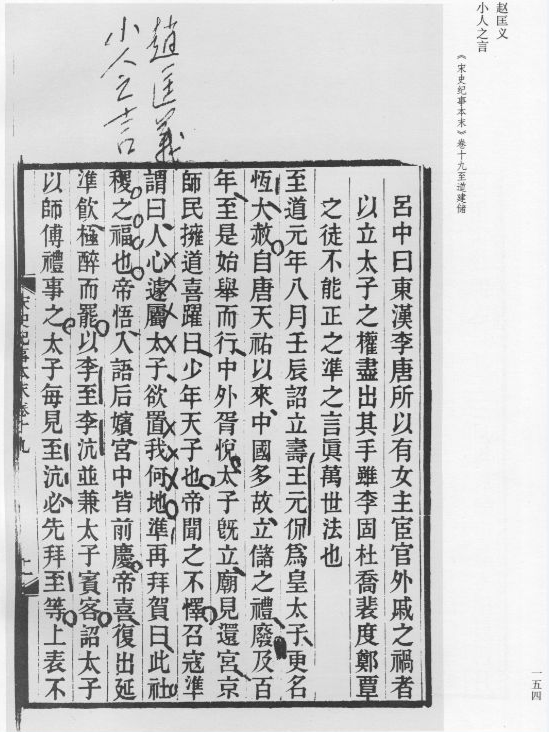 赵匡义
小人之言
《宋史纪事本末》卷十九至道建储
一五四
趙匡義
小人之言
呂中曰東漢李唐所以有女主宦官外戚之禍者
以立太子之權盡出其手雖李固杜喬裴度鄭覃
之徒不能正之準之言眞萬世法也
至道元年八月壬辰詔立壽王元侃爲皇太子更名
恆大赦自唐天祐以來中國多故立儲之禮廢及百
年至是始舉而行中外胥悅太子旣立廟見還宮京
師民擁道喜躍曰少年天子也帝聞之不懌召寇準
謂曰人心遽屬太子欲置我何地準再拜賀曰此社
稷之福也帝悟入語后嬪宮中皆前慶帝喜復出延
準飲極醉而罷以李至李沆並兼太子賓客詔太子
以師傅禮事之太子每見至沆必先拜至等上表不
宋史紀事本末卷十九